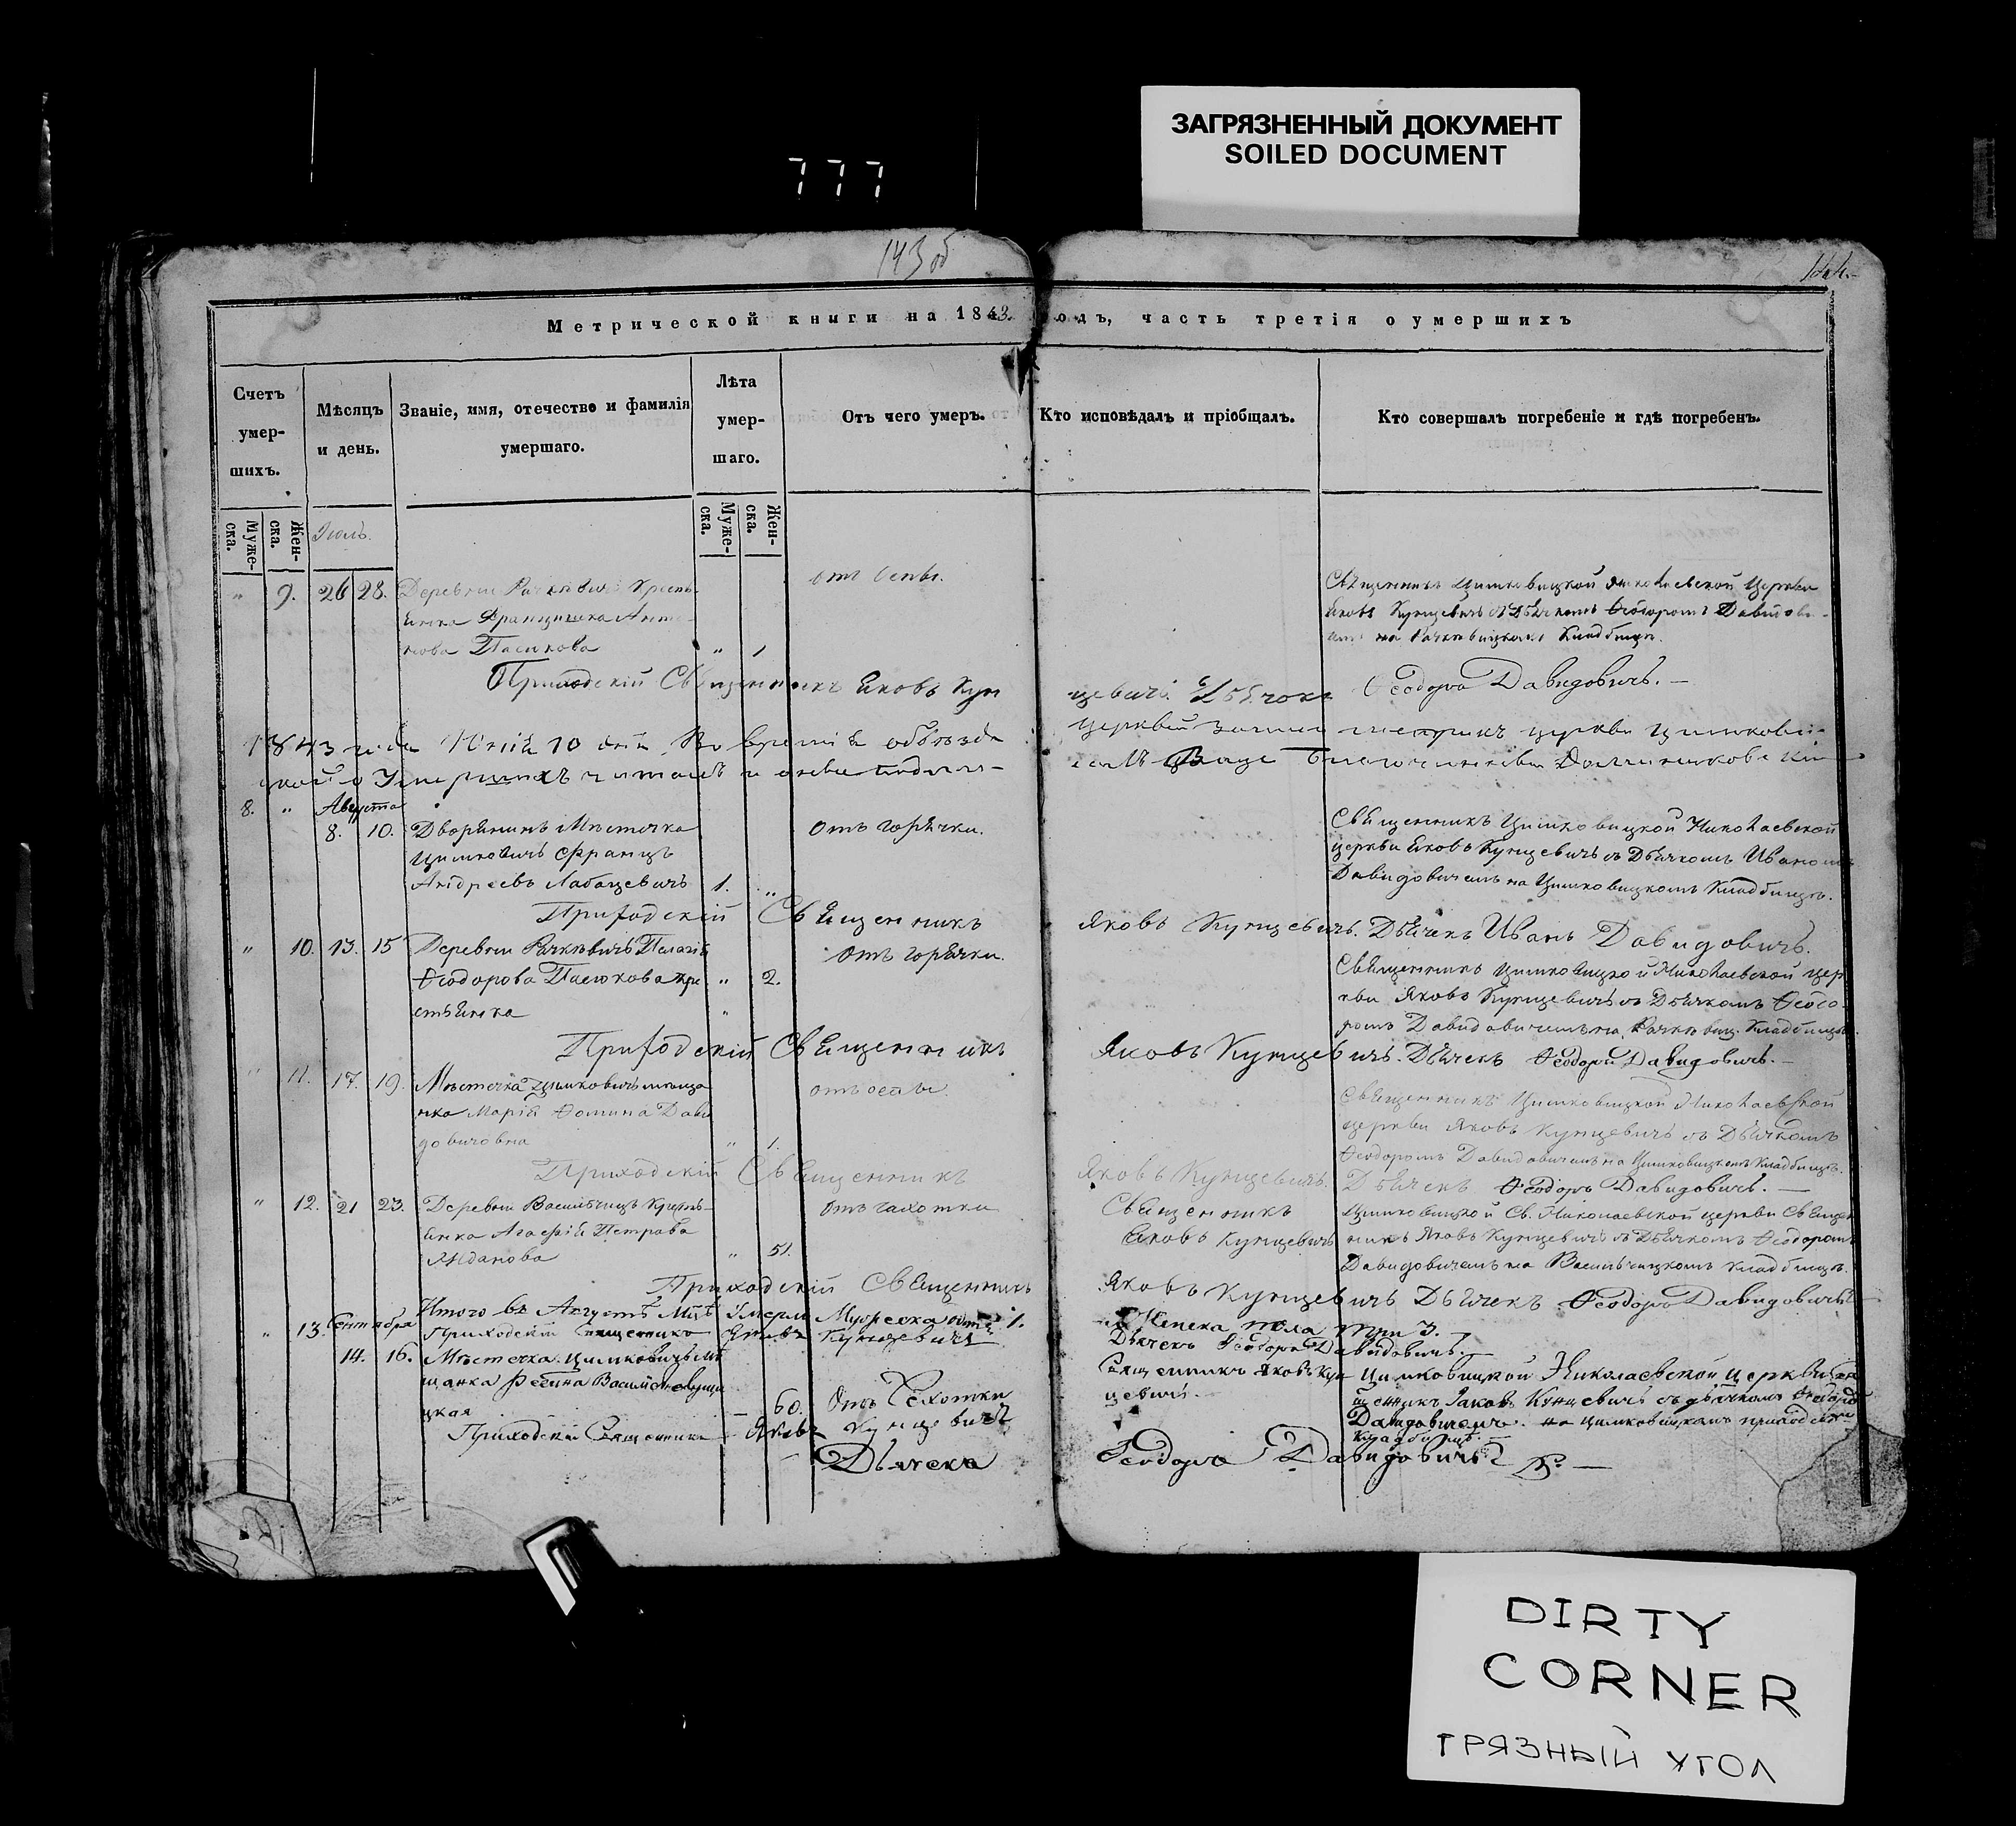 ЗАГРЯЗНЕННЫЙ ДОКУМЕНТ
SOILED DOCUMENT
777
143 об
144.
Метрической книги на 1843. одъ, часть третія о умершихъ
Счетъ умер-шихъ.
Мѣсяцъ и день.
Званіе, имя, отечество и фамилія умершаго.
Лѣта умер-шаго.
Отъ чего умеръ.
Кто исповѣдалъ и пріобщалъ.
Кто совершалъ погребеніе и гдѣ погребенъ.
Муже-ска.
Жен-ска.
Муже-ска.
Жен-ска.
Іюль.
" 9. 26 28.
Деревни Крестъ-
янка Францишка Анто-
нова Пасюкова " 1
отъ оспы.
Священникъ Цимковицкой Николаевской Церкви
Яковъ Кунцевичъ съ Дьячкомъ Ѳеодоромъ Давидови-
на Кладбищѣ.
Приходскій Священникъ Яковъ Кун
цевичъ. Дьячокъ Ѳеодоръ Давидовичъ.
1843 года 10 дня Во время объезда
церквей церкви Цимкови-
о Умершихъ читалъ и
8. " Августа
8. 10. Дворянинъ Мѣстечка
Цимковичъ Францъ
Андреевъ Лабацевичъ 1. "
отъ горячки.
Священникъ Цимковицкой Николаевской
церкви Яковъ Кунцевичъ съ Дьячкомъ Иваномъ
Давидовичемъ на Цимковицкомъ Кладбищѣ.
Приходскій Священникъ
Яковъ Кунцевичъ. Дьячекъ Иванъ Давидовичъ.
" 10. 13. 15 Деревни Рачковичъ Пелагія
Ѳеодорова Пасюкова кре " 2.
стьянка
отъ горячки.
Священникъ Цимковицкой Николаевской цер
кви Яковъ Кунцевичъ съ Дьячкомъ Ѳеодо-
ромъ Давидовичемъ на Рачковиц. Кладбищѣ.
Приходскій Священникъ
Яковъ Кунцевичъ. Дьячекъ Ѳеодоръ Давидовичъ.
" 11. 17. 19. Мѣстечка Цимковичъ мѣща
нка Марія Ѳомина Дави
довичовна " 1.
отъ оспы.
Священникъ Цимковицкой Николаевской
церкви Яковъ Кунцевичъ съ Дьячкомъ
Ѳеодоромъ Давидовичемъ на Цимковицкомъ Кладбищѣ.
Приходскій Священникъ
Яковъ Кунцевичъ. Дьячекъ Ѳеодоръ Давидовичъ.
" 12. 21 23. Деревни Василѣчицъ Кресть-
янка Агафія Петрова
Жданова " 51.
отъ чахотки
Священникъ
Яковъ Кунцевичъ
Цимковицкой Св. Николаевской церкви Священ
никъ Яковъ Кунцевичъ съ Дьячкомъ Ѳеодоромъ
Давидовичемъ на Василѣчицкомъ Кладбищѣ.
Приходскій Священникъ
Яковъ Кунцевичъ Дьячекъ Ѳеодоръ Давидовичъ
Итого въ Августѣ М-цѣ Умерли Мужеска пола 1.
Женска пола три 3.
" 13. Сентября
Приходскій Священникъ Яковъ Кунцевичъ
Дьячекъ Ѳеодоръ Давидовичъ.
14. 16. Мѣстечка Цимковичъ мѣ
щанка Регина
цкая 60.
Отъ Чахотки
Священникъ Яковъ Кун
цевичъ.
Цимковицкой Николаевской Церкви Свя
щенникъ Іаковъ Кунцевичъ съ дьячкомъ Ѳеодоро
Давидовичемъ на Цимковицкомъ приходскомъ
кладбищѣ.
Приходскій Священникъ Яковъ Кунцевичъ
Дьячекъ Ѳеодоръ Давидовичъ
DIRTY
CORNER
ГРЯЗНЫЙ УГОЛ